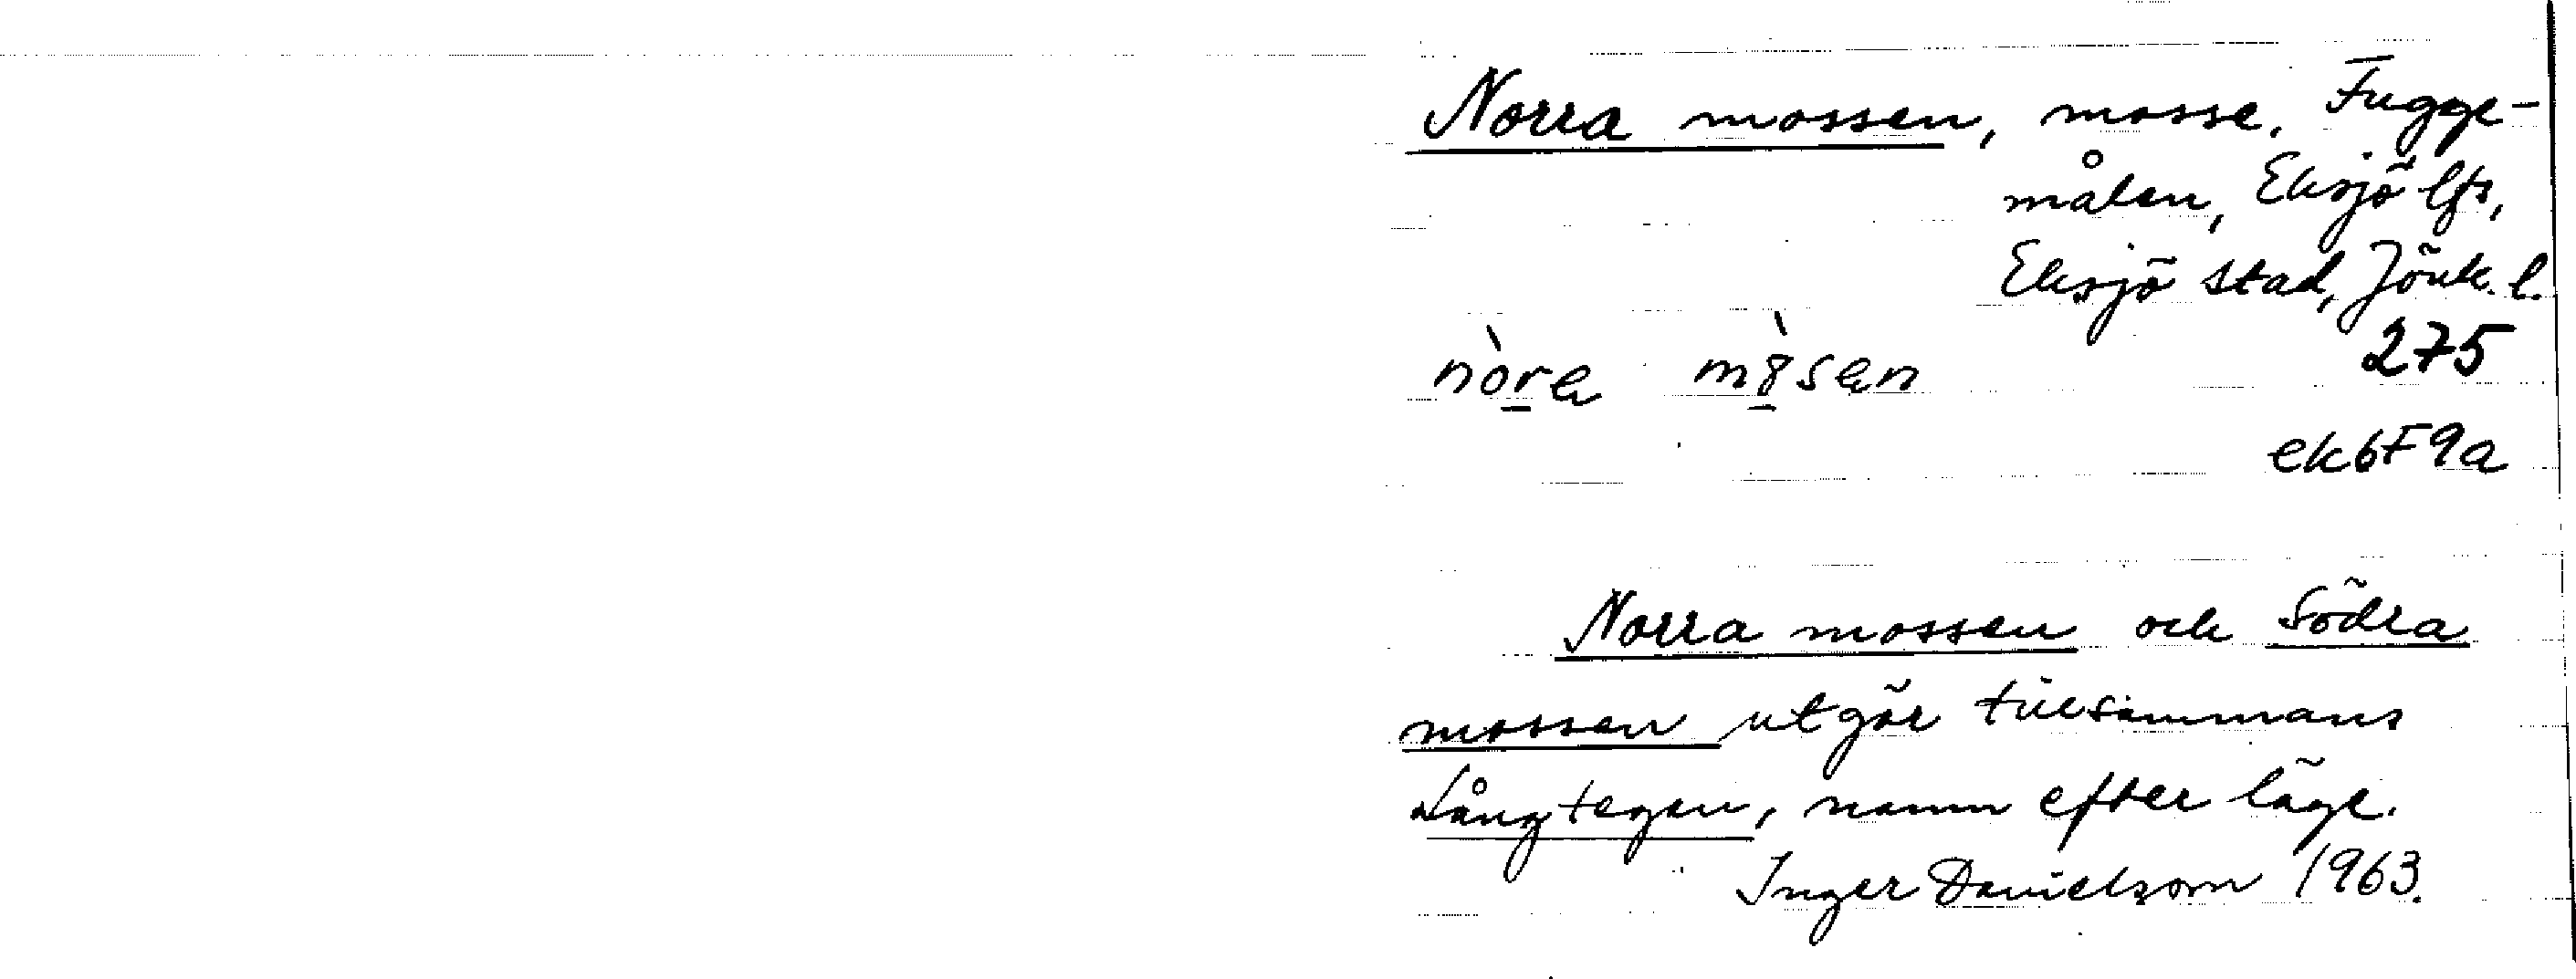 Norra mossen, mosse, Fugge-
målen, Eksjö lfs,
Eksjö stad, Jönk. l.
275
nòra mòsen
ek6F9a
Norra mossen och Södra
mossen utgör tillsammans
Långtegen, namn efter läge.
Inger Danielsson 1963.